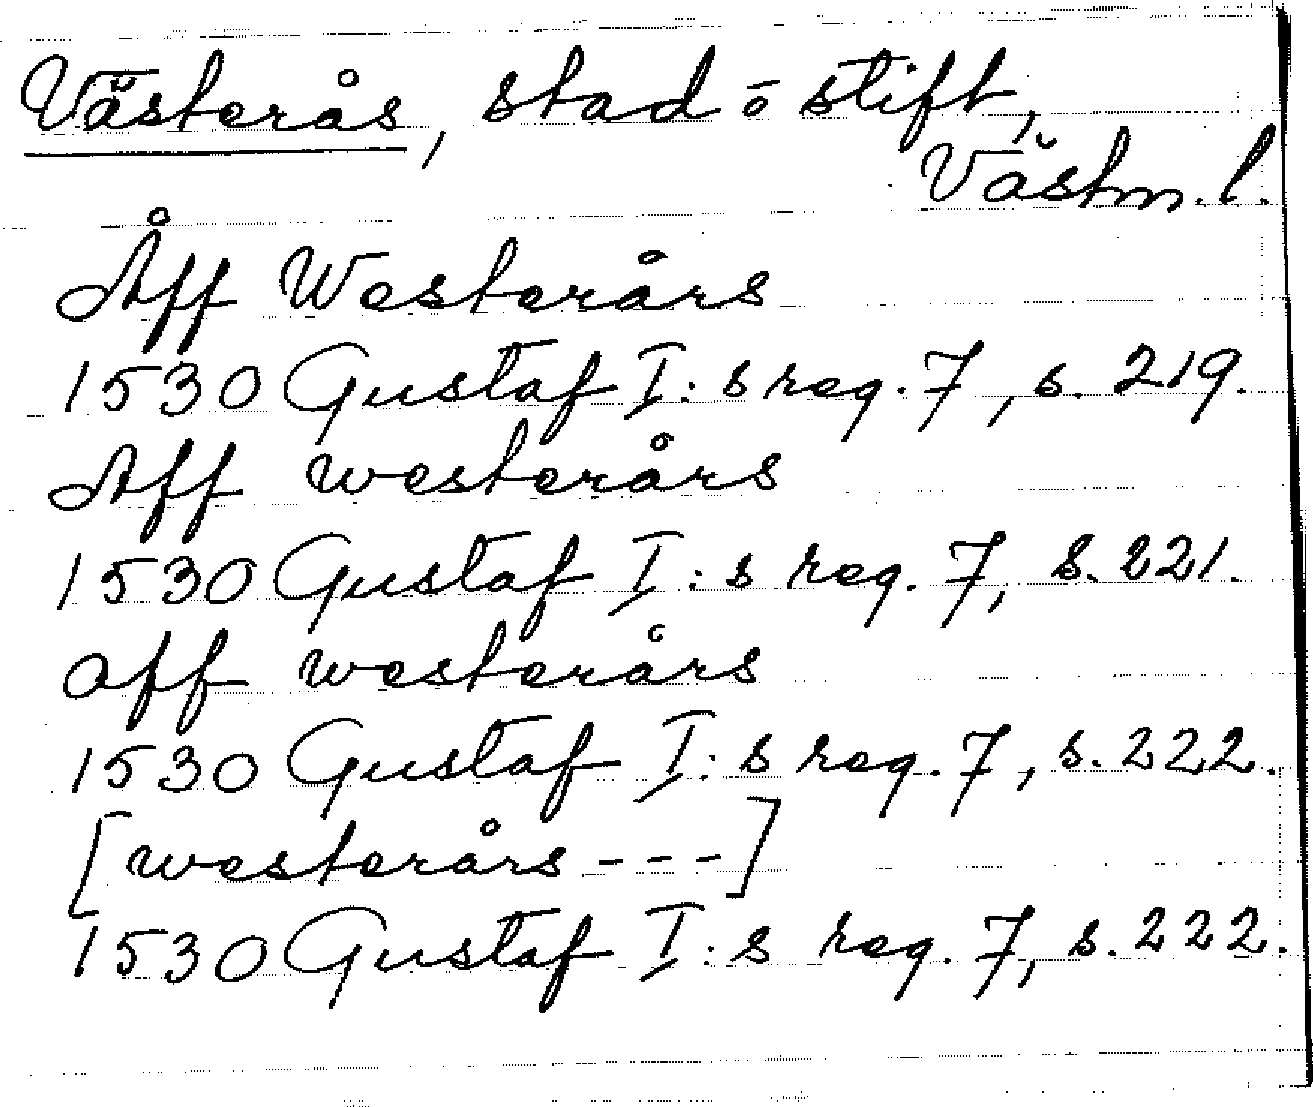 Västerås, stad o stift,
Västm.l.
Åff Westerårs
1530 Gustaf I:s reg. 7, s. 219.
Aff westerårs
1530 Gustaf I:s reg. 7, s. 221.
aff westerårs
1530 Gustaf I:s reg. 7, s. 222.
[westerårs - - -]
1530 Gustaf I:s reg. 7, s. 222.